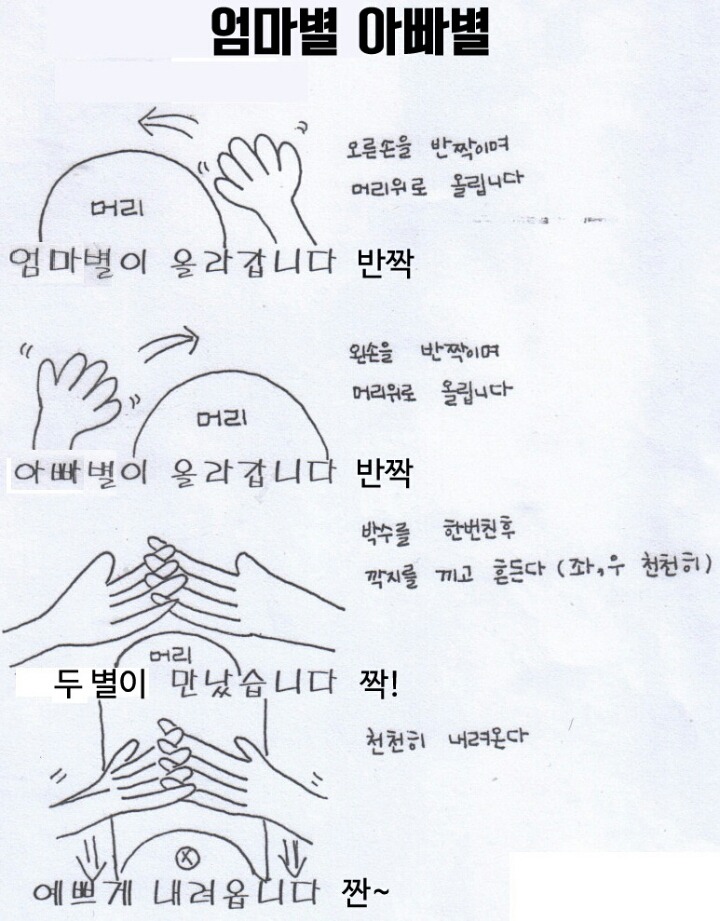 엄마별 아빠별
오른손을 반짝이며
머리위로 올립니다
머리
엄마별이 올라갑니다 반짝
왼손을 반짝이며
머리위로 올립니다
머리
아빠별이 올라갑니다 반짝
박수를 한번친후
깍지를 끼고 흔든다 (좌,우 천천히)
머리
두 별이 만났습니다 짝!
천천히 내려온다
예쁘게 내려옵니다 짠~